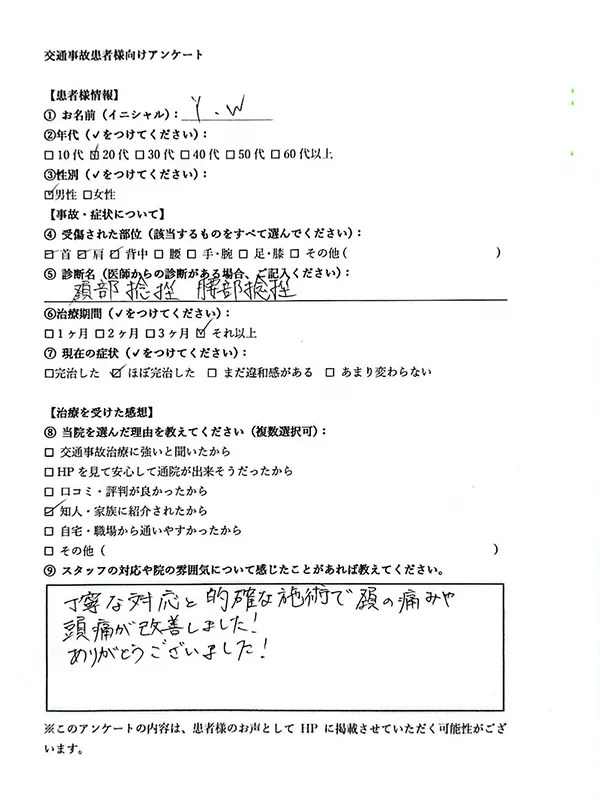 交通事故患者様向けアンケート
【患者様情報】
① お名前（イニシャル）： Y.W
②年代（✓をつけてください）：
□10代 ☑20代 □30代 □40代 □50代 □60代以上
③性別（✓をつけてください）：
☑男性 □女性
【事故・症状について】
④ 受傷された部位（該当するものをすべて選んでください）：
☑首 ☑肩 ☑背中 □腰 □手・腕 □足・膝 □その他（ ）
⑤ 診断名（医師からの診断がある場合、ご記入ください）：
頚部捻挫 腰部捻挫
⑥治療期間（✓をつけてください）：
□1ヶ月 □2ヶ月 □3ヶ月 ☑それ以上
⑦ 現在の症状（✓をつけてください）：
□完治した ☑ほぼ完治した □まだ違和感がある □あまり変わらない
【治療を受けた感想】
⑧ 当院を選んだ理由を教えてください（複数選択可）：
□ 交通事故治療に強いと聞いたから
□HPを見て安心して通院が出来そうだったから
□ 口コミ・評判が良かったから
☑ 知人・家族に紹介されたから
□ 自宅・職場から通いやすかったから
□ その他（ ）
⑨ スタッフの対応や院の雰囲気について感じたことがあれば教えてください。
丁寧な対応と的確な施術で頚の痛みや
頭痛が改善しました！
ありがとうございました！
※このアンケートの内容は、患者様のお声として HP に掲載させていただく可能性がござ
います。